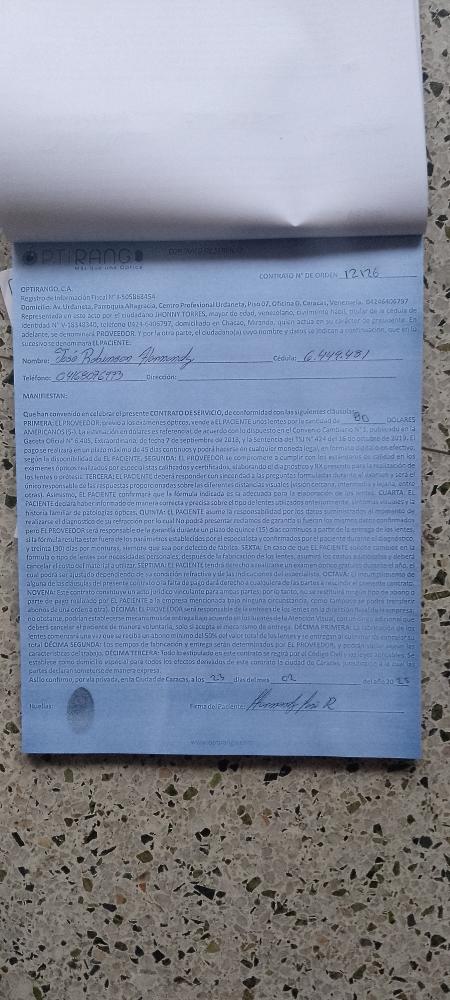 OPTIRANGO
Más que una Óptica
CONTRATO N° DE ORDEN 12126
OPTIRANGO, C.A.
Registro de Información Fiscal N° J-505868454
Domicilio: Av. Urdaneta, Parroquia Altagracia, Centro Profesional Urdaneta, Piso 07, Oficina G, Caracas, Venezuela. 04246406797
Representada en este acto por el ciudadano JHONNY TORRES, mayor de edad, venezolano, civilmente hábil, titular de la cédula de
Identidad N° V-18343840, teléfono 0424-6406797, domiciliado en Chacao, Miranda, quien actúa en su carácter de
adelante, se denominará PROVEEDOR. Y por la otra parte, el ciudadano(a) cuyo nombre y datos se indican a continuación, que en lo
sucesivo se denominará EL PACIENTE.
Nombre: José Robinson Cédula: 6.449.481
Teléfono: Dirección:
MANIFIESTAN:
Que han convenido en celebrar el presente CONTRATO DE SERVICIO, de conformidad con las siguientes cláusulas:
PRIMERA: EL PROVEEDOR, previo a los exámenes ópticos, vende a EL PACIENTE unos lentes por la cantidad de 80 DÓLARES
AMERICANOS
Gaceta Oficial N° 6.405, Extraordinario, de fecha 7 de septiembre de 2018, y la Sentencia del TSJ N° 424 del 16 de octubre de 2019. El
pago se realizará en un plazo máximo de 45 días continuos y podrá hacerse en cualquier moneda legal, en forma digital o en efectivo,
según la disponibilidad de EL PACIENTE. SEGUNDA: EL PROVEEDOR se compromete a cumplir con los estándares de calidad en los
exámenes ópticos realizados por especialistas calificados y certificados, elaborando el diagnóstico y RX
los lentes o prótesis. TERCERA: EL PACIENTE deberá responder con sinceridad a las preguntas formuladas durante el examen y será el
único responsable de las respuestas proporcionadas sobre las diferentes distancias visuales (visión cercana, intermedia y lejana, entre
otras). Asimismo, EL PACIENTE confirmará que la fórmula indicada es la adecuada para la elaboración de los lentes. CUARTA: EL
PACIENTE declara haber informado de manera correcta y precisa sobre el tipo de lentes utilizados anteriormente,
historia familiar de patologías ópticas. QUINTA: EL PACIENTE asume la responsabilidad por los datos suministrados al momento de
realizarse el diagnóstico de su refracción por lo cual No podrá presentar reclamos de garantía si fueron los mismos datos confirmados
pero EL PROVEEDOR será responsable de la garantía durante un plazo de quince (15) días continuos a partir de la entrega de los lentes,
si la fórmula resulta estar fuera de los parámetros establecidos por el especialista y confirmados por el paciente durante el diagnóstico,
y treinta (30) días por monturas, siempre que sea por defecto de fábrica. SEXTA: En caso de que EL PACIENTE solicite cambios en la
fórmula o tipo de lentes por necesidades personales, después de la fabricación de los lentes,
cancelar el costo del material a utilizar. SÉPTIMA: EL PACIENTE tendrá derecho a realizarse un examen óptico gratuito durante el año, el
cual podrá ser ajustado dependiendo de su condición refractiva y de las indicaciones del especialista. OCTAVA: El incumplimiento de
alguna de las cláusulas del presente contrato o la falta de pago dará derecho a cualquiera de las partes a resolver el presente contrato.
NOVENA: Este contrato constituye un acto jurídico vinculante para ambas partes; por lo tanto, no se restituirá ningún tipo de abono o
parte de pago realizado por EL PACIENTE a la empresa mencionada bajo ninguna circunstancia,
abono de una orden a otra). DÉCIMA: EL PROVEEDOR será responsable de la entrega de los lentes en la dirección fiscal de la empresa;
no obstante, podrán establecerse mecanismos de entrega
deberá cancelar el paciente de manera voluntaria, solo si acepta el mecanismo de entrega. DÉCIMA PRIMERA:
lentes comenzará una vez que se reciba un abono mínimo del 50% del valor total de los lentes y se entregan al culminar de cancelar su
total. DÉCIMA SEGUNDA: Los tiempos de fabricación y entrega serán determinados por EL PROVEEDOR, y podrán variar según las
características del trabajo. DÉCIMA TERCERA: Todo lo estipulado en este contrato se regirá por el Código Civil y sus leyes aplicables. Se
establece como domicilio especial para todos los efectos derivados de este contrato la ciudad de Caracas,
partes declaran someterse de manera expresa.
Así lo confirmo, por vía privada, en la Ciudad de Caracas, a los 23 días del mes 02 del año 2025
Huellas: Firma del Paciente:
www.optirango.com